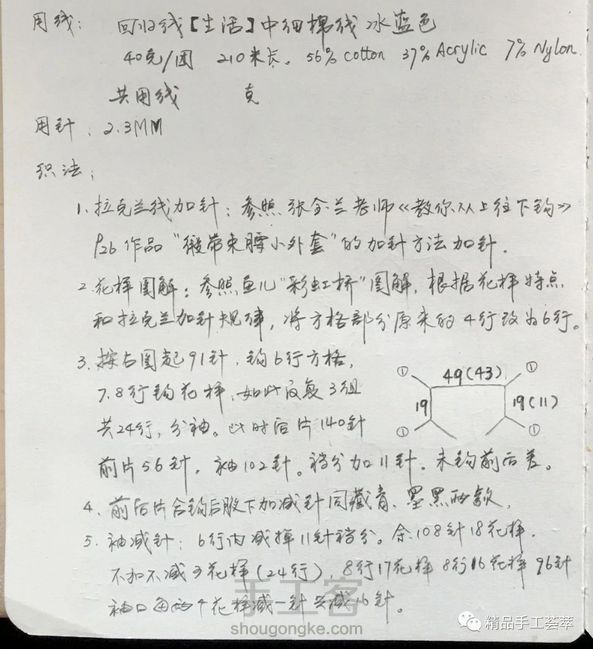 用线: 回归线【生活】中细棉线 冰蓝色
40克/团 210米长. 56% cotton 37% Acrylic 7% Nylon.
共用线 克
用针: 2.3MM
织法:
1. 拉克兰线加针: 参照 张金兰老师《教你从上往下钩》
P26 作品 "缎带束腰小外套" 的加针方法加针.
2. 花样图解: 参照鱼儿"彩虹桥"图解, 根据花样特点
和拉克兰加针规律, 将方格部分原来的4行改为6行。
3. 按右图起91针, 钩6行方格,
7.8行钩花样, 如此反复3组
共24行, 分袖。此时后片140针
前片56针, 袖102针。裆分加11针. 未钩前后差。
① 49(43) ①
19 19(11)
① ①
4. 前后片合钩后腋下加减针同藏青、墨黑两款.
5. 袖减针: 6行内减掉11针裆分。余108针18花样.
不加不减3花样(24行), 8行17花样 8行16花样 96针
袖口每 花样减一针 共减16针。
手工客
shougongke.com
精品手工荟萃